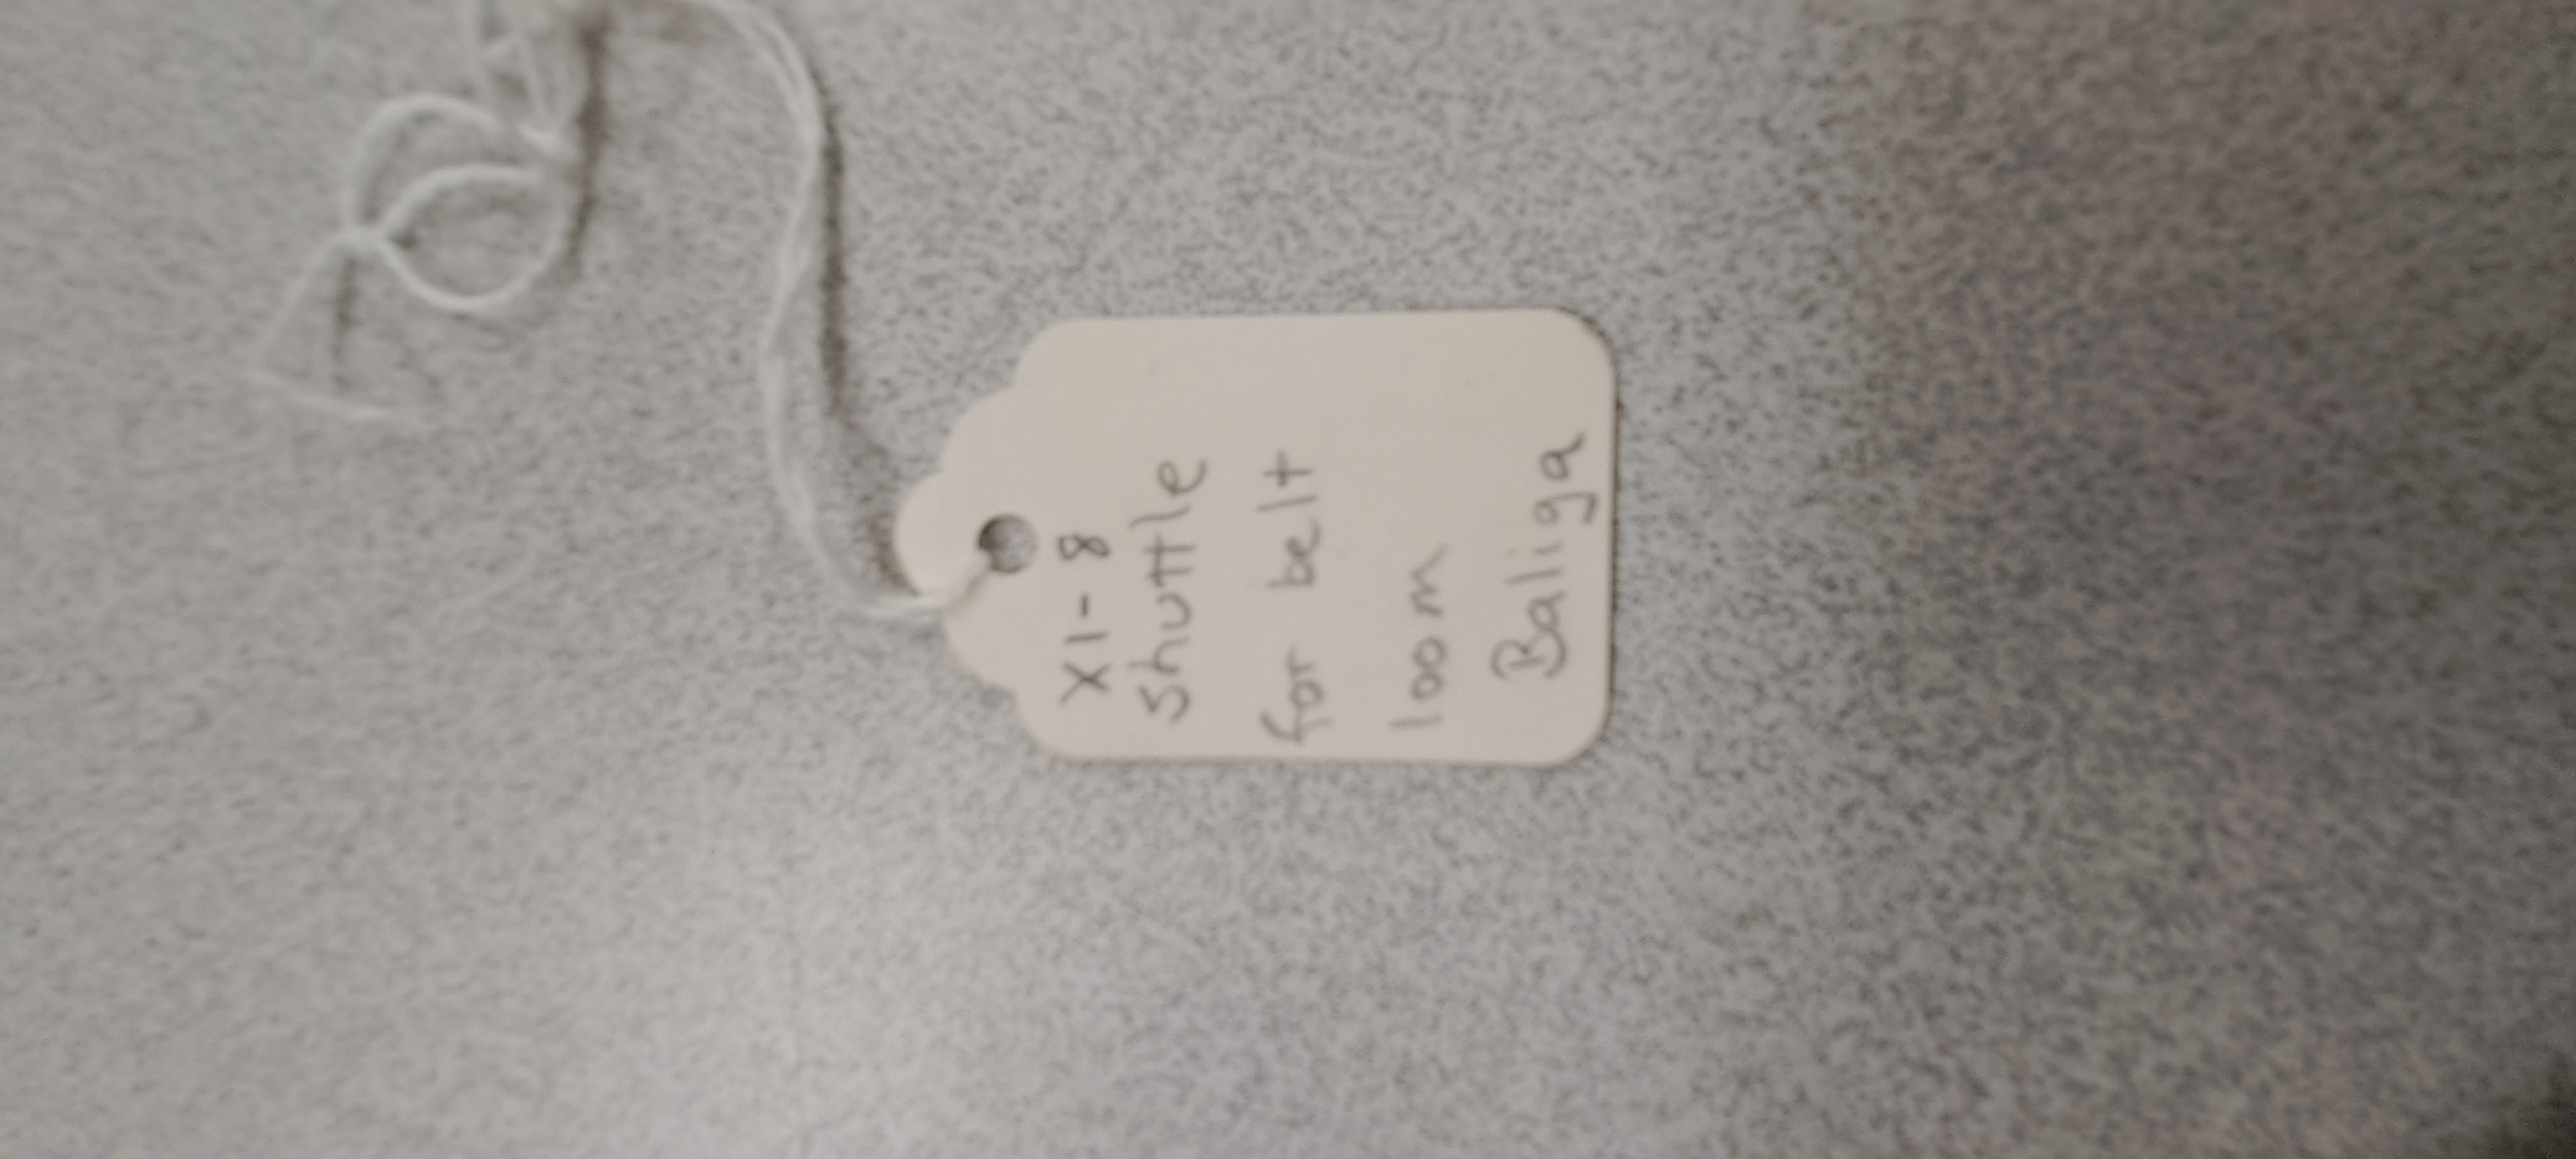 X1-8
shuttle
for belt
loom
Baliga